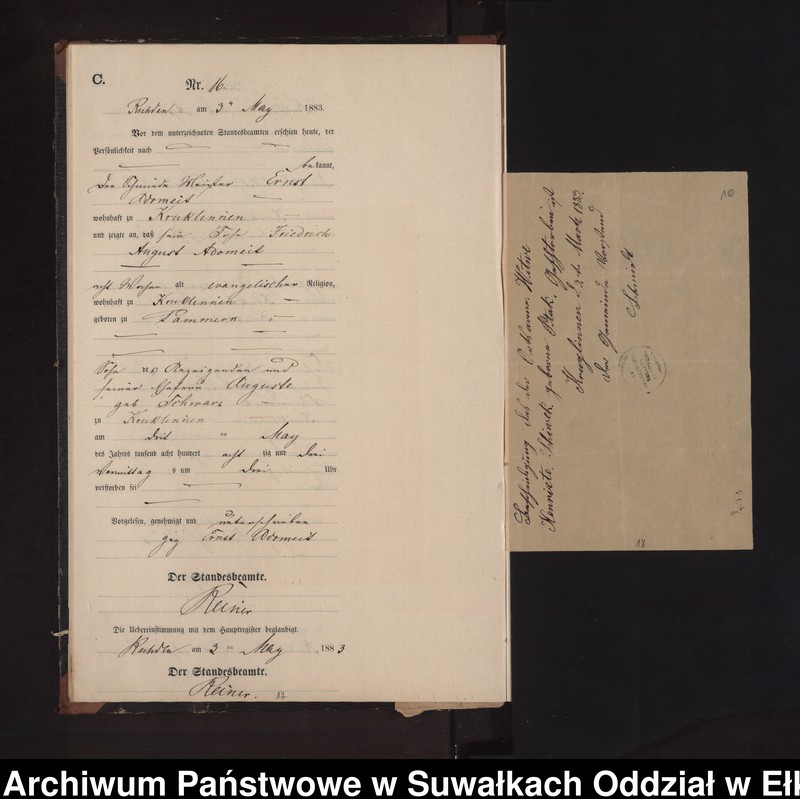 C.
Nr. 16.
Ruhden am 3ⁿ May 1883.
Vor dem unterzeichneten Standesbeamten erschien heute, der
Persönlichkeit nach
bekannt,
Der Schmiede Meister Ernst
Adomeit
wohnhaft zu Kruklinnen
und zeigte an, daß sein Sohn Friedrich
August Adomeit
acht Wochen alt evangelischer Religion,
wohnhaft zu Kruklinnen
geboren zu
Sohn des Anzeigenden und
seiner Ehefrau Auguste
geb Schwarz
zu Kruklinnen
am drei ten May
des Jahres tausend acht hundert acht zig und drei
Vormittag s um drei Uhr
verstorben sei
Vorgelesen, genehmigt und unterschrieben
gez Ernst Adomeit
Der Standesbeamte.
Reiner
Die Uebereinstimmung mit dem Hauptregister beglaubigt.
Ruhden am 3 ten May 1883
Der Standesbeamte.
Reiner.
17
10
Bescheinigung das die Witwe
Henriete geborne Ptak, Gestorben ist
Kruglinnen d. Merk 1883
Der Gemeinde Vorstand
Schmidt
18
Archiwum Państwowe w Suwałkach Oddział w Ełk